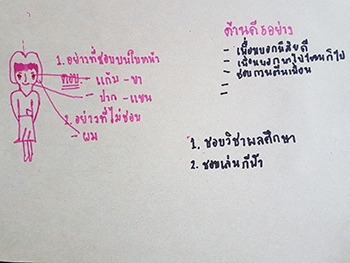 1. อย่างที่ชอบบนใบหน้า
ตอบ. - แก้ม - ขา
- ปาก - แขน
2. อย่างที่ไม่ชอบ
- ผม
ด้านดี 5 อย่าง
- เพื่อนบอกนิสัยดี
- เพื่อน ไปไหนก็ไป
- ชอบ เพื่อน
-
-
1. ชอบวิชาพลศึกษา
2. ชอบเล่นกีฬา